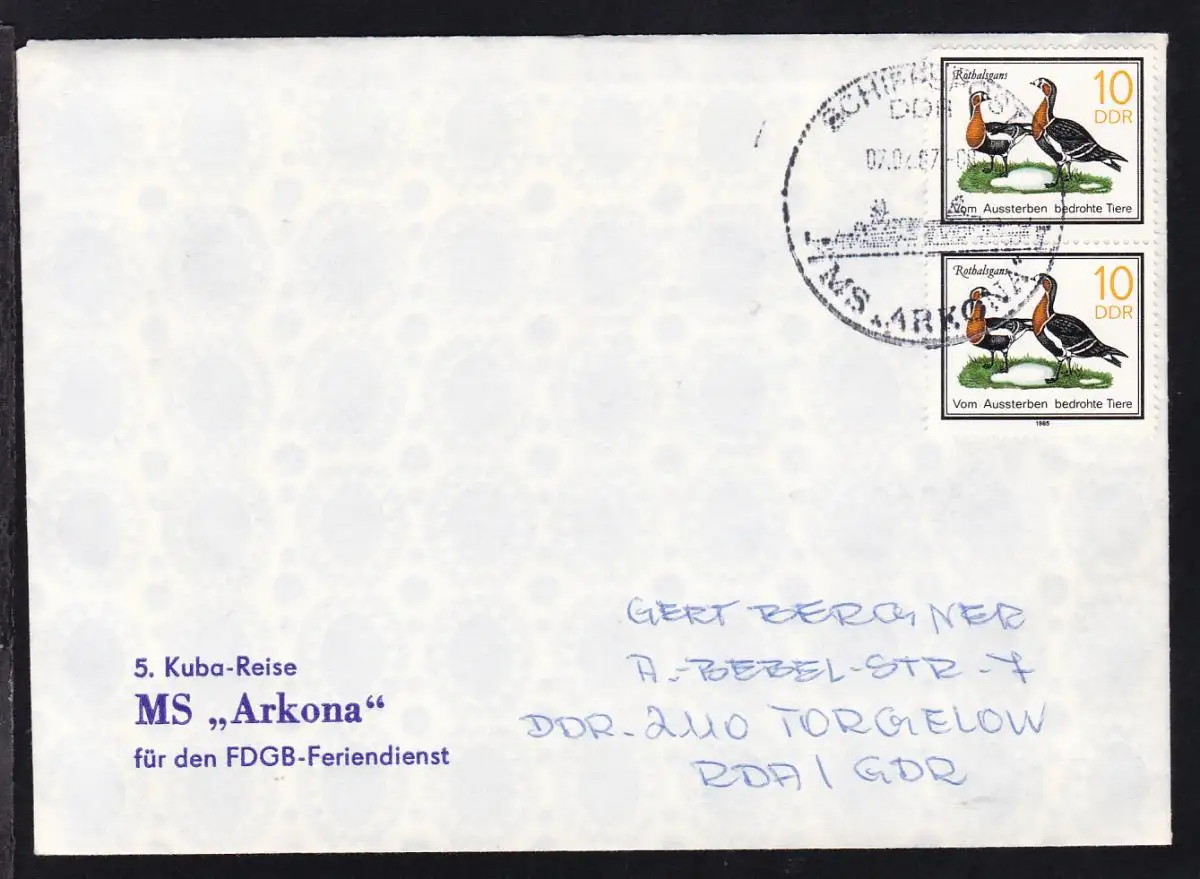 Rothalsgans
10
DDR
Vom Aussterben bedrohte Tiere
Rothalsgans
10
DDR
Vom Aussterben bedrohte Tiere
1985
DDR
MS „ARKONA"
GERT BERGNER
A.-BEBEL-STR-7
DDR-2110 TORGELOW
RDA/GDR
5. Kuba-Reise
MS „Arkona“
für den FDGB-Feriendienst